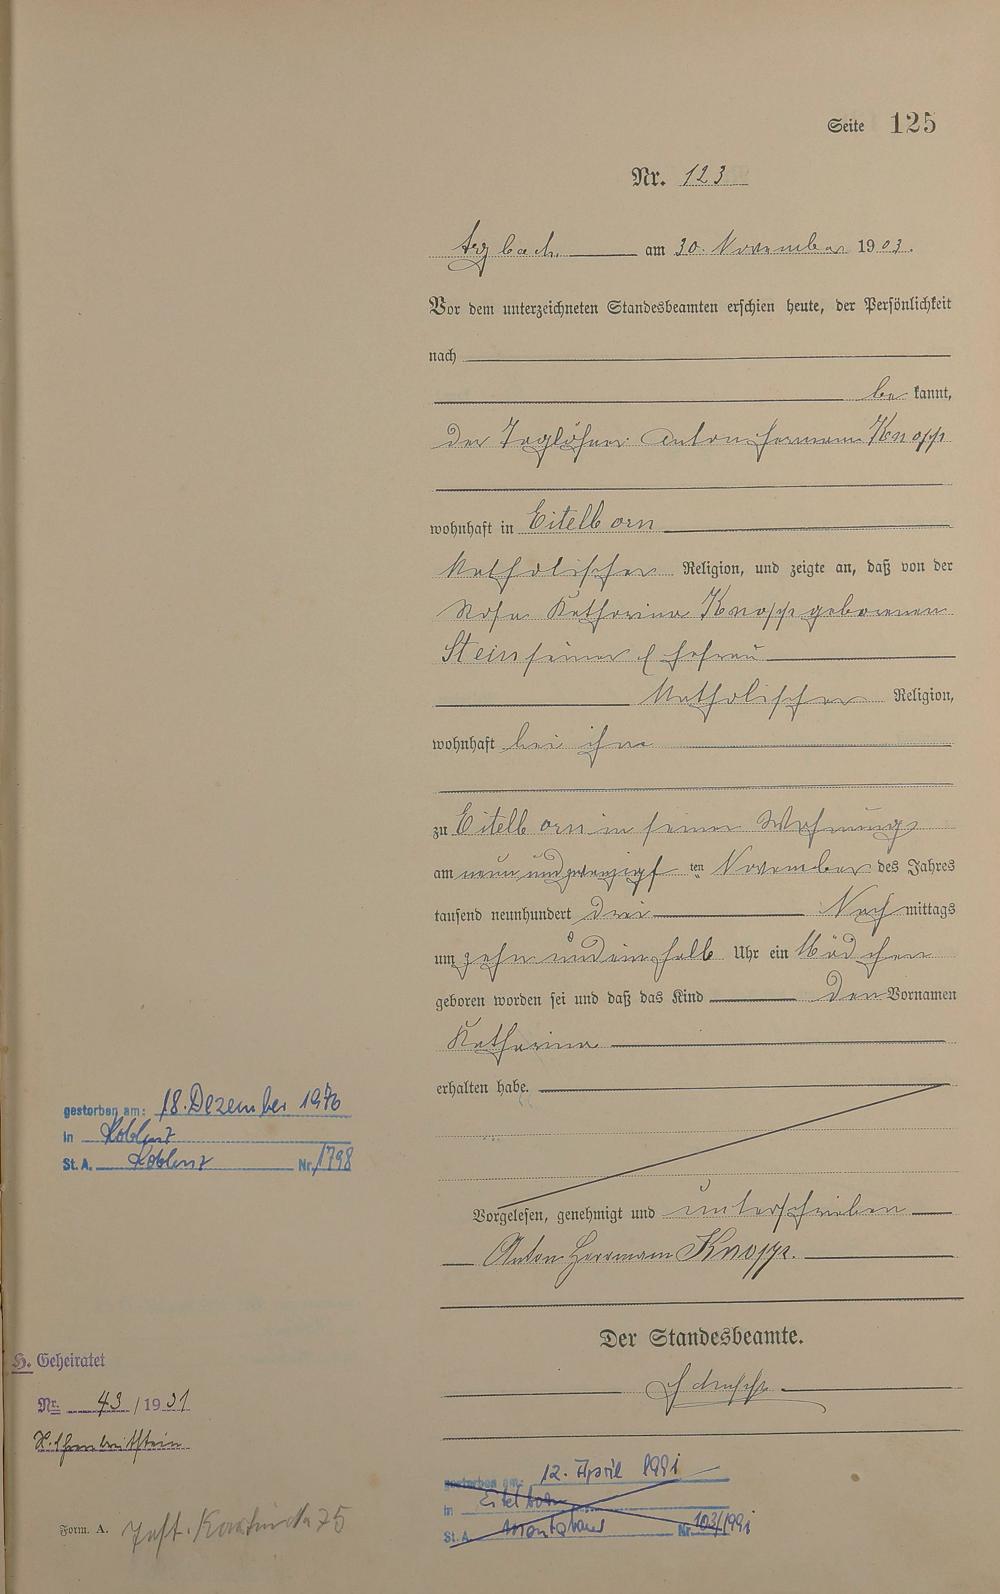 Seite 125
Nr. 123
Arzbach am 30. November 1903.
Vor dem unterzeichneten Standesbeamten erschien heute, der Persönlichkeit
nach
be kannt,
der Taglöhner Anton Hermann Knopp
wohnhaft in Eitelborn
katholischer Religion, und zeigte an, daß von der
Rosa Katharina Knopp geborenen
Stein seiner Ehefrau
katholischer Religion,
wohnhaft bei ihm
zu Eitelborn in seiner Wohnung
am neun und zwanzigsten November des Jahres
tausend neunhundert drei Nach mittags
um zehn und ein halb Uhr ein Mädchen
geboren worden sei und daß das Kind den Vornamen
Katharina
erhalten habe.
Vorgelesen, genehmigt und unterschrieben
Anton Herrmann Knopp.
Der Standesbeamte.
gestorben am: 18. Dezember 1976
in Koblenz
St. A. Koblenz Nr. 1798
H. Geheiratet
Nr. 43 / 1931
gestorben am: 12. April 1991
in Eitelborn
St. A. Montabaur Nr. 103/1991
Form. A.